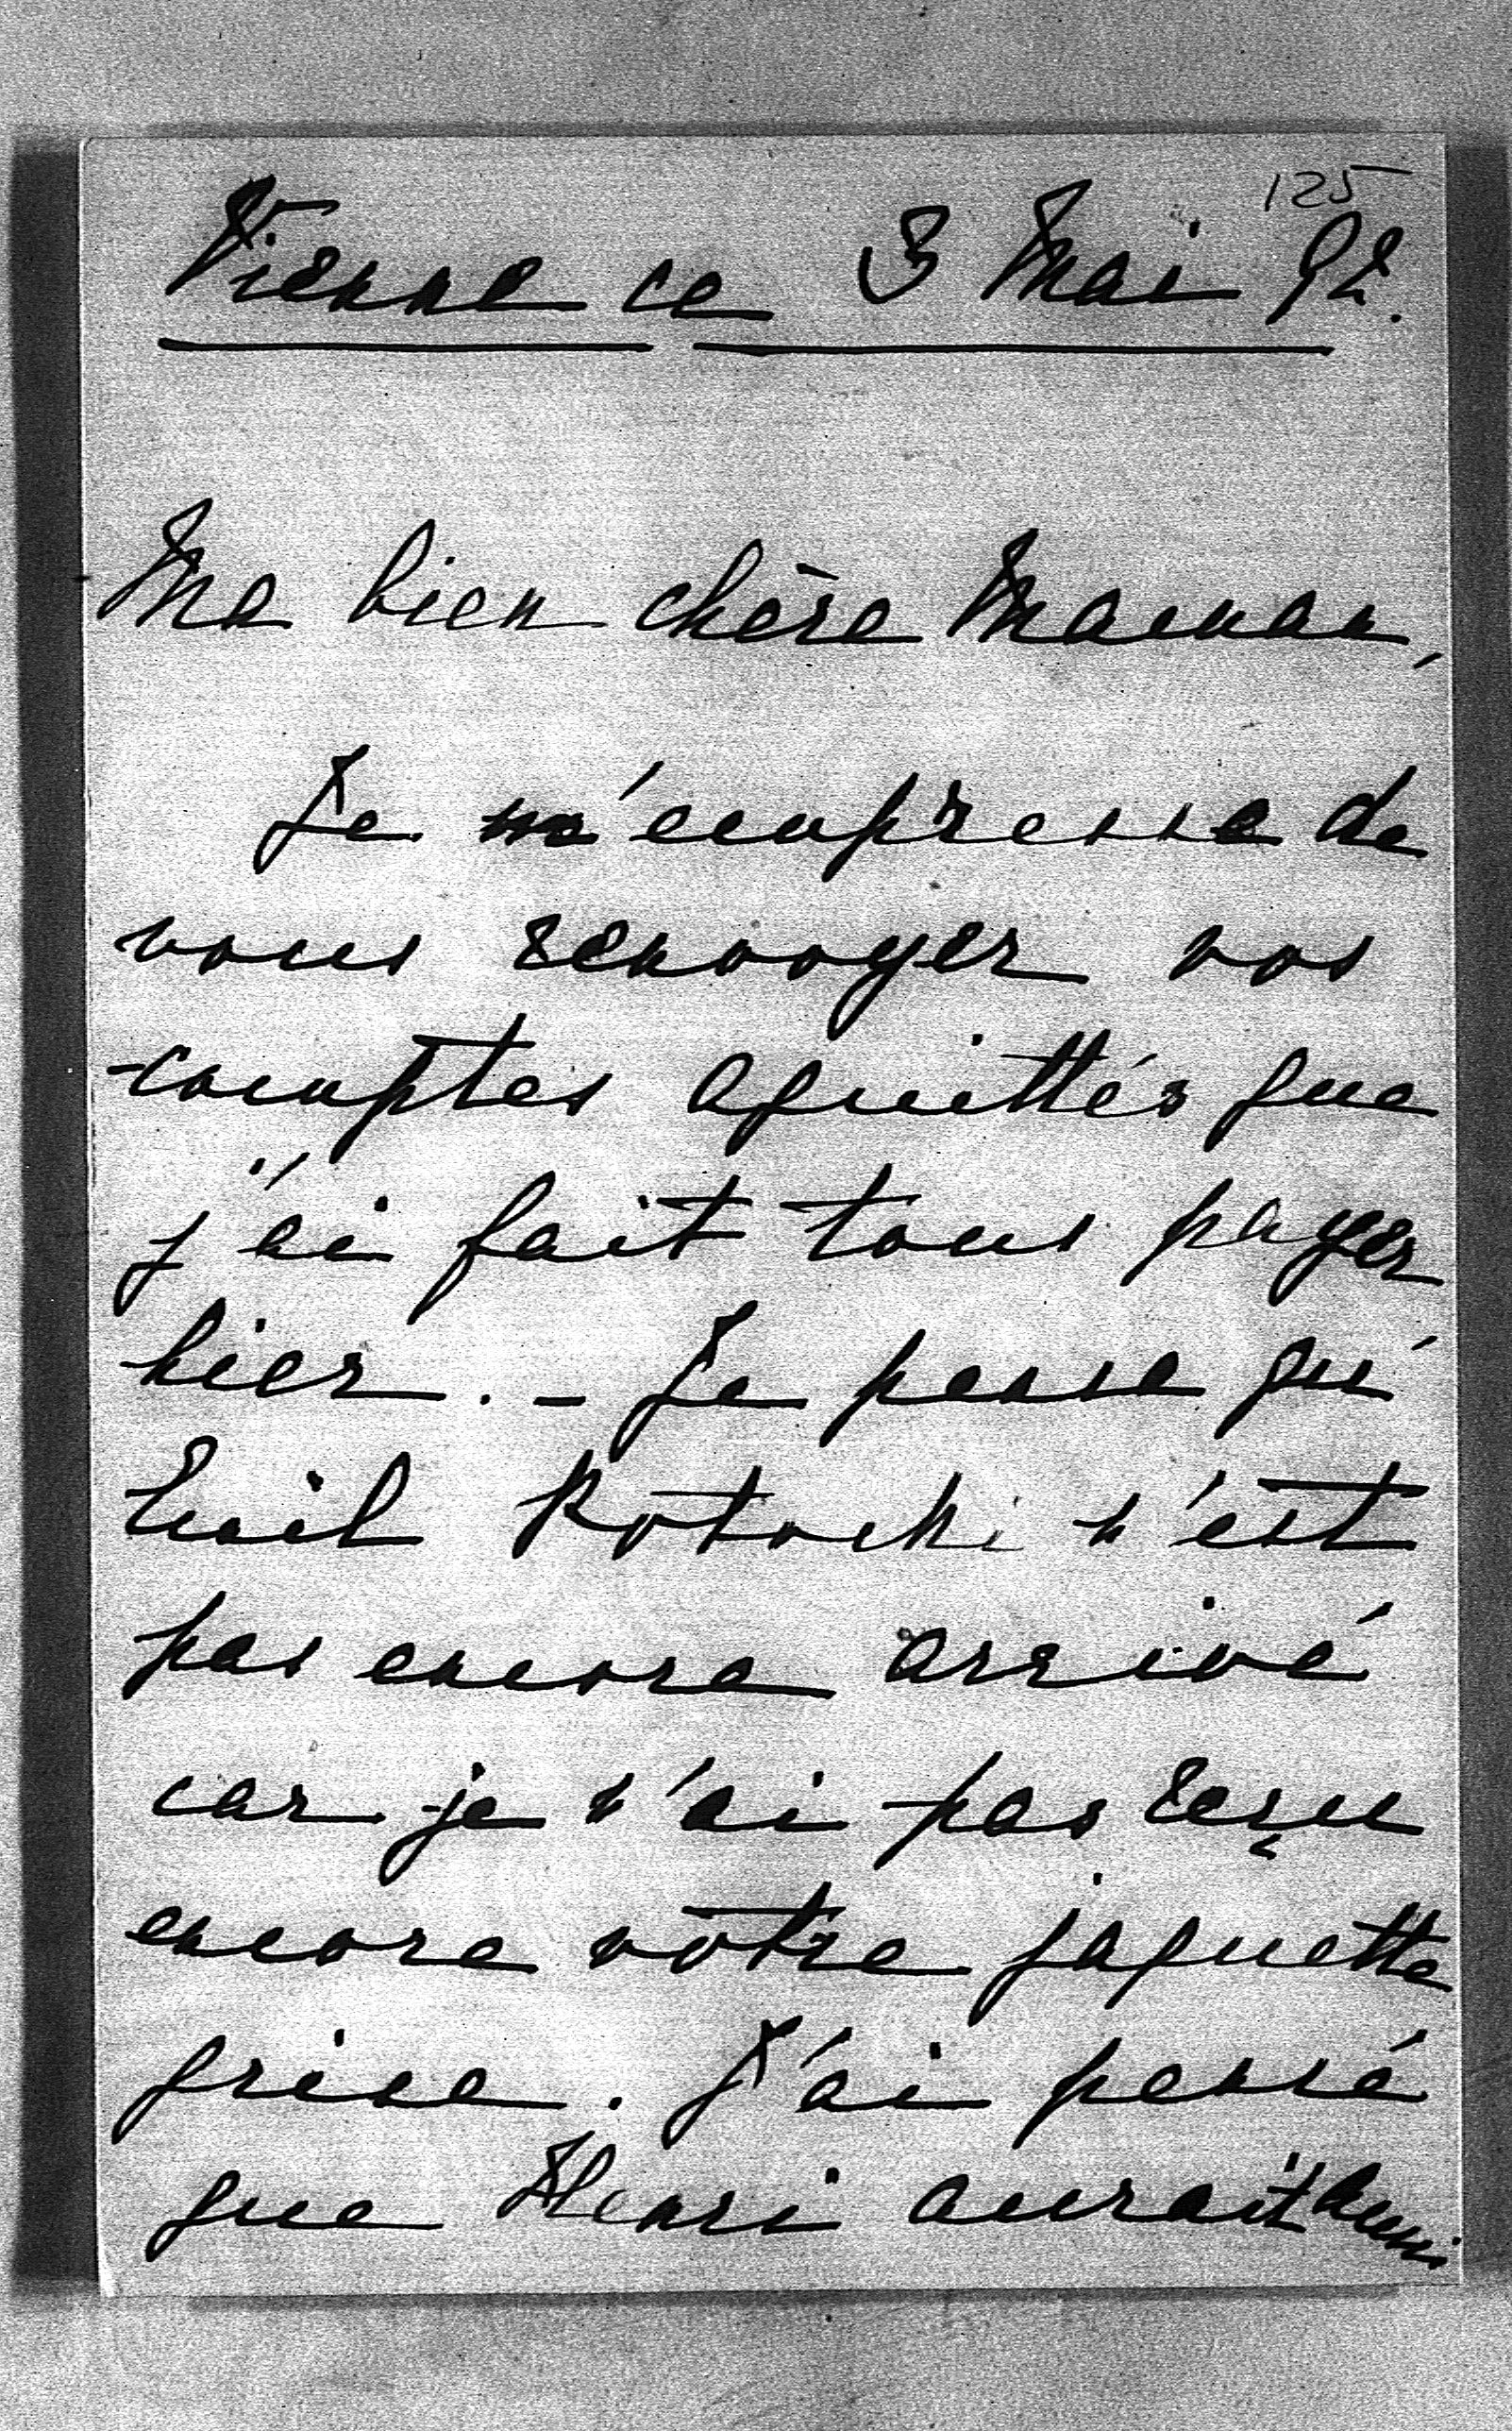 125
Vienne ce 3 Mai 92.
Ma bien chère Maman,
Je m'empresse de
vous renvoyer vos
comptes aquittés que
j'ai fait tous payer
hier. - Je pense qu'
Emil Potocki n'est
pas encore arrivé
car je n'ai pas reçu
encore vôtre jaquette
grise. J'ai pensé
que Henri aurait aussi